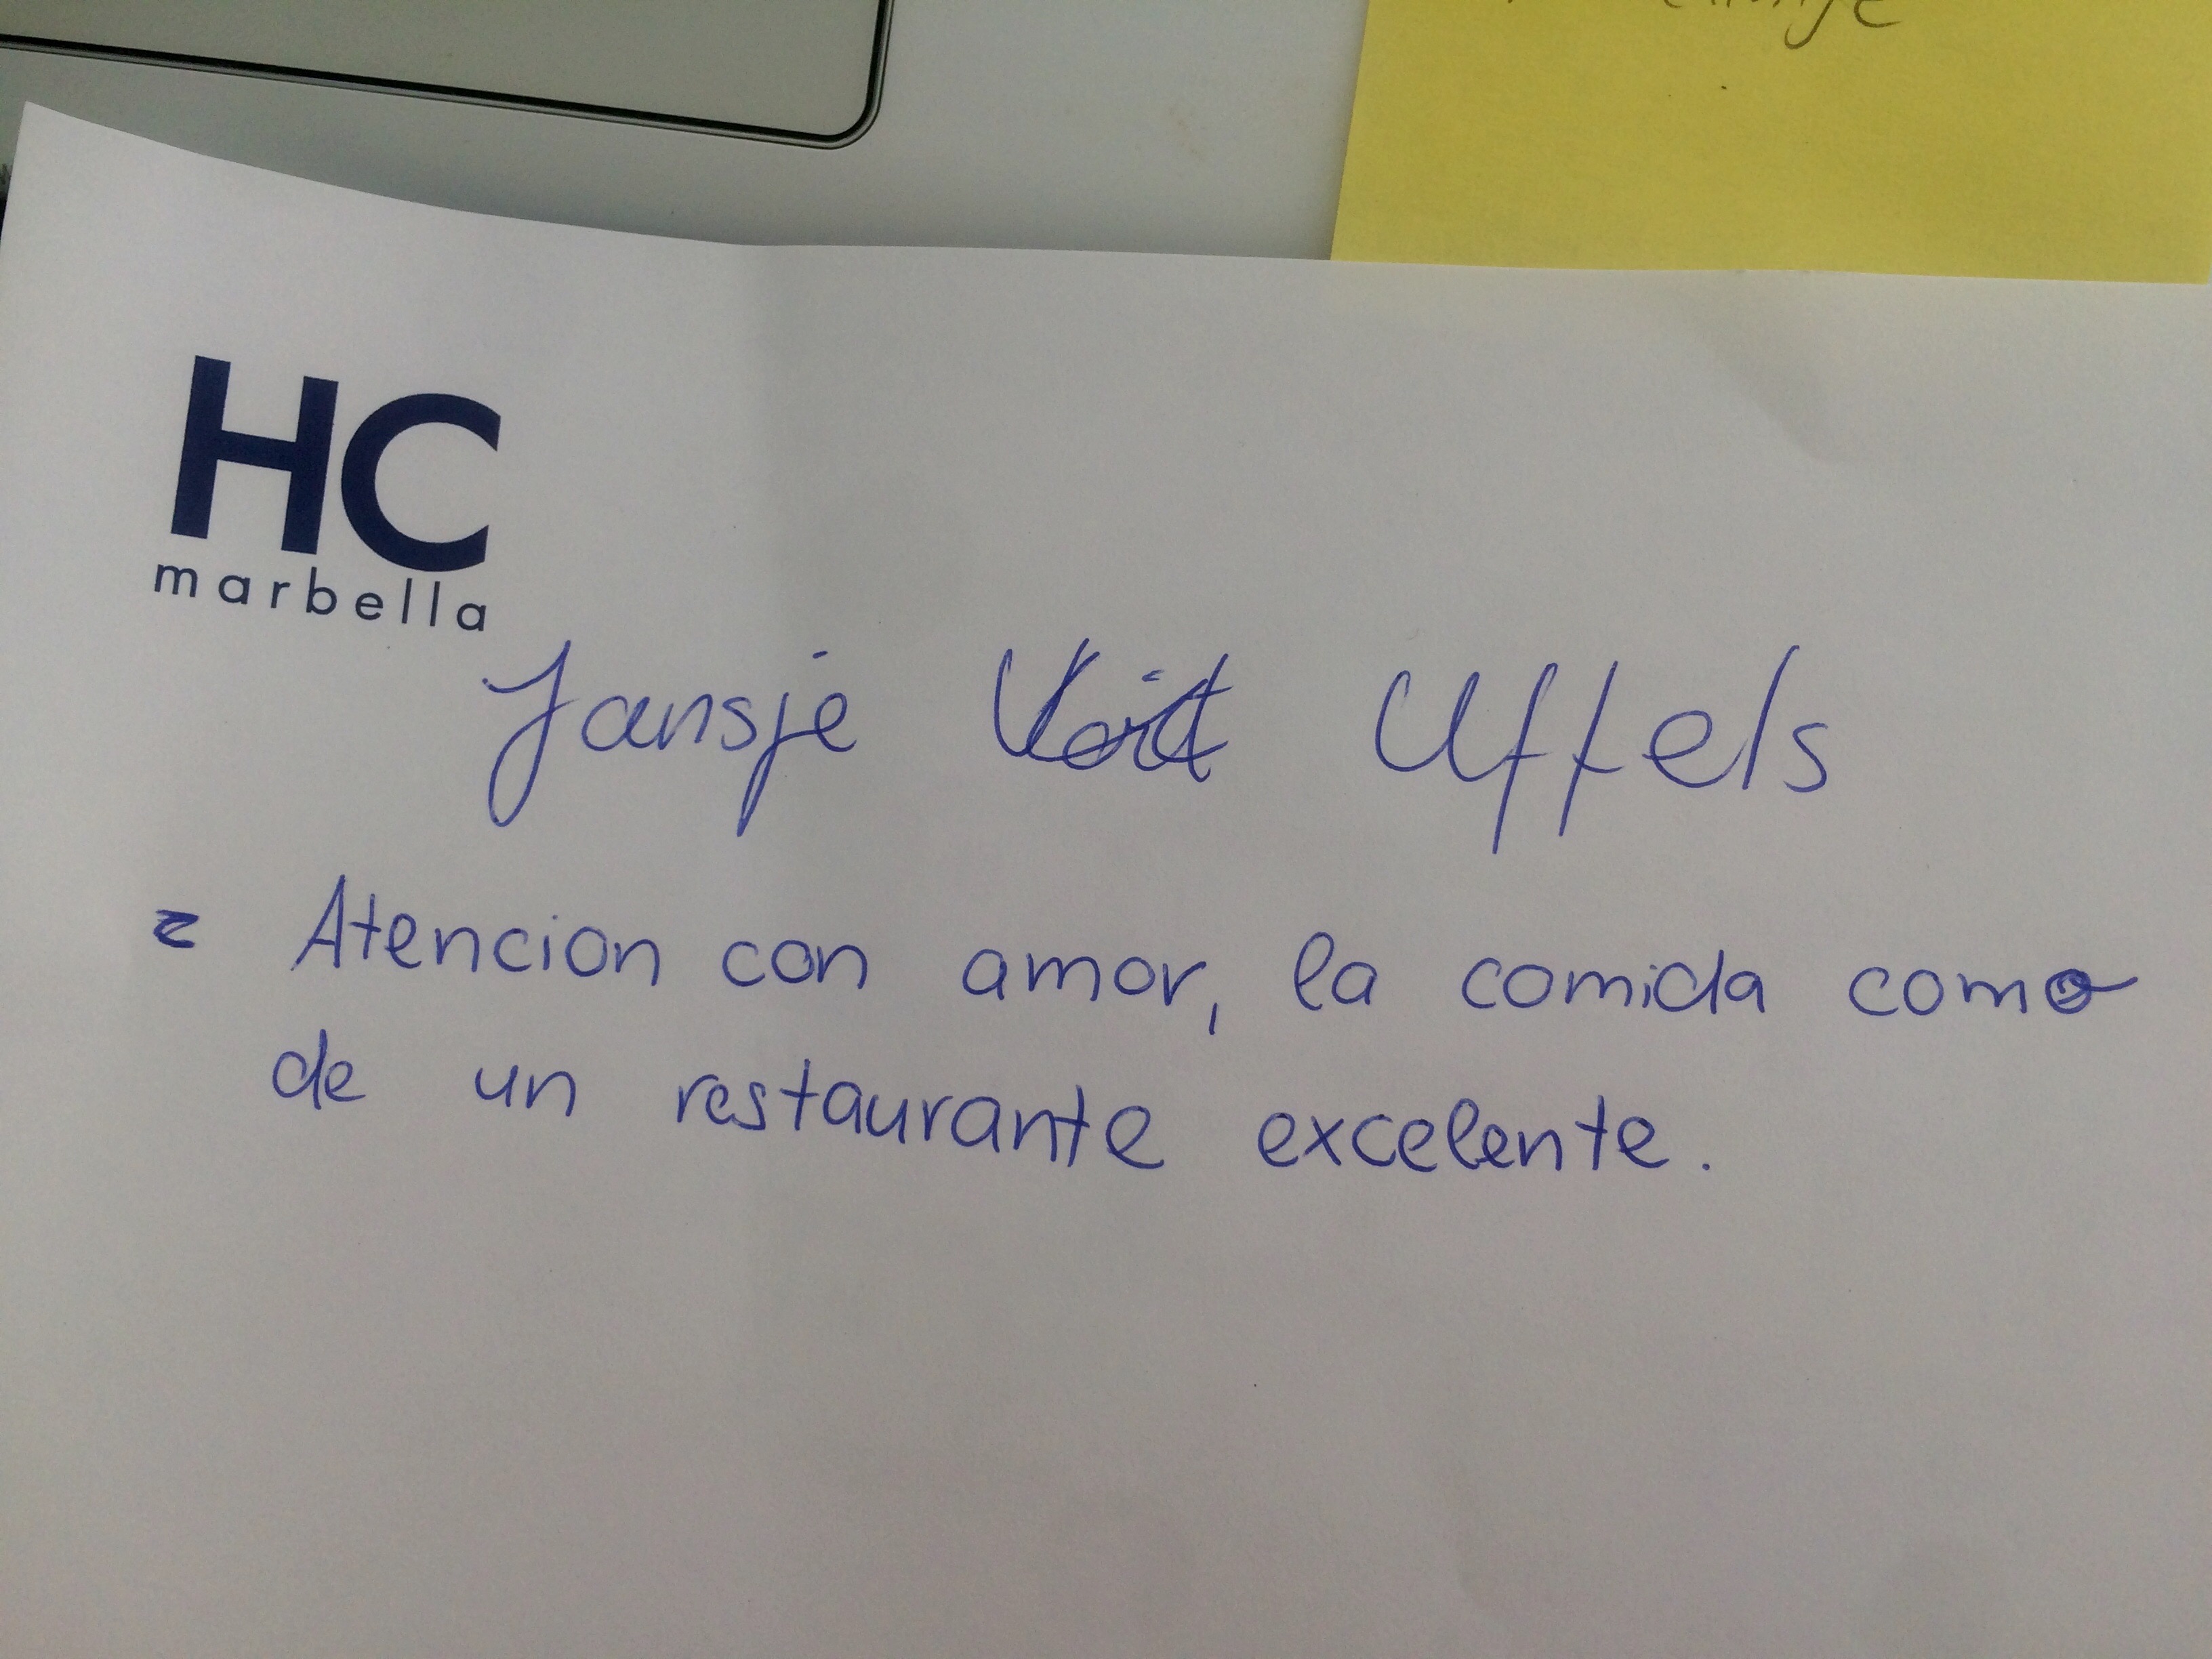 HC
marbella
Jansje Uffels
= Atencion con amor, la comida como
de un restaurante excelente.